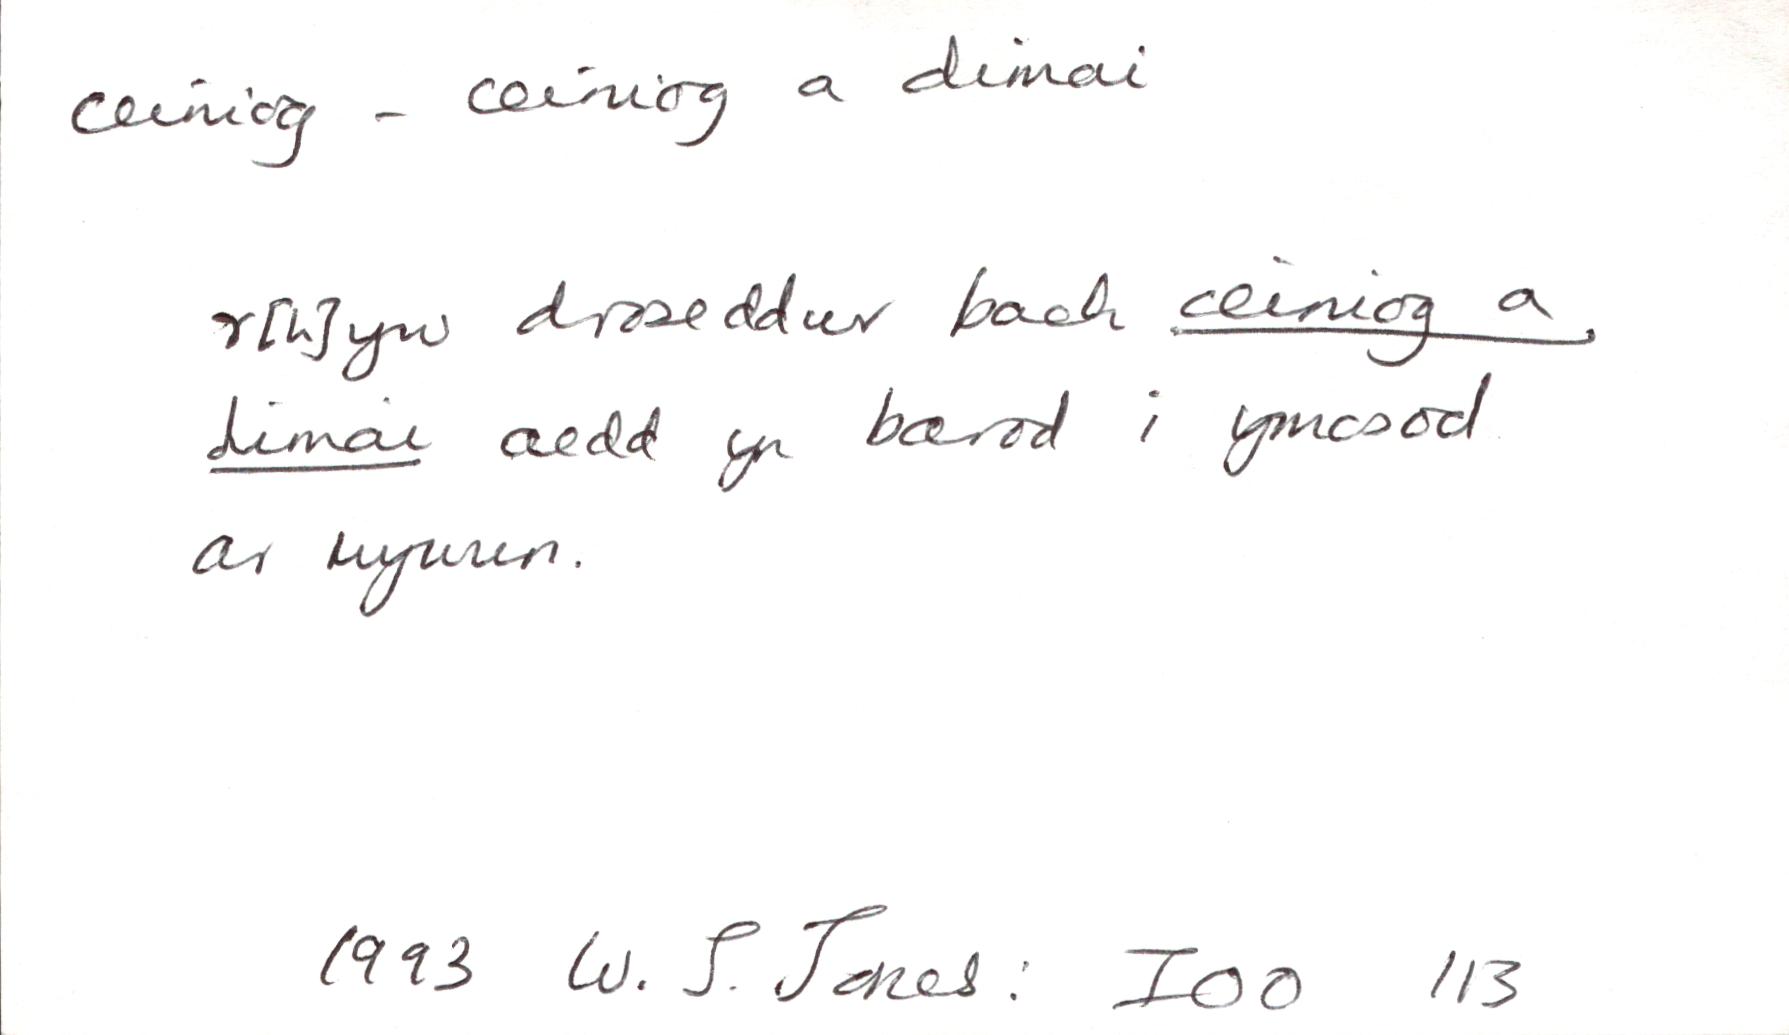 ceiniog - ceiniog a dimai
r[h]yw droseddwr bach ceiniog a
dimai aedd yn barod i ymosod
ar rywun.
1993 W. S. Jones: IOO 113